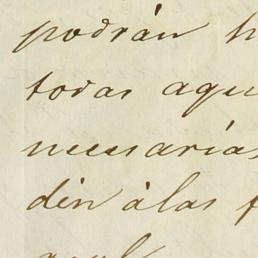 podrán h
todas aqu
necesarias
den àlas f